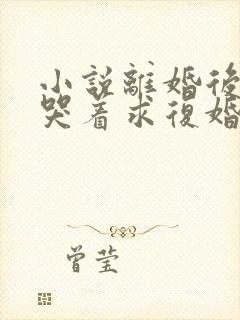 小說離婚後
哭着求復婚
曾莹